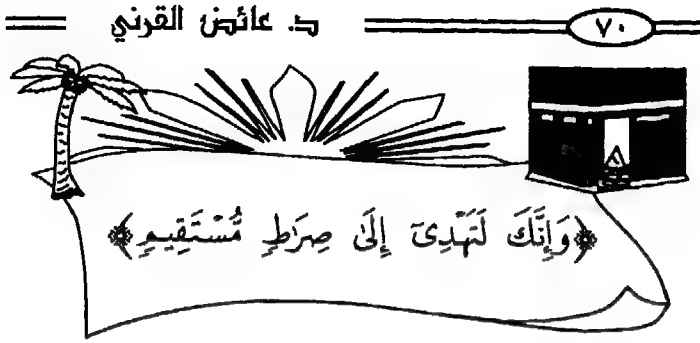 ٧٠ د. عائض القرني
﴿وَإِنَّكَ لَتَهْدِىٓ إِلَىٰ صِرَٰطٍ مُّسْتَقِيمٍ﴾